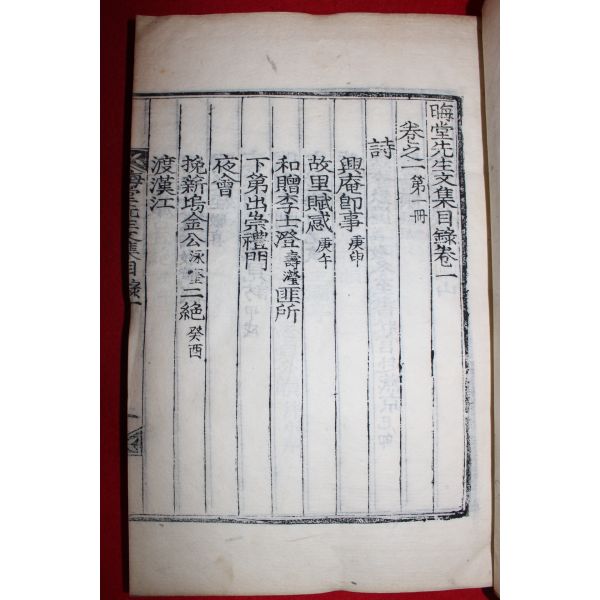 晦堂先生文集目錄卷一
卷之一 第一冊
詩
興庵卽事 庚印
故里賦感 庚午
和贈李士澄 壽瀅 匪所
下第出崇禮門
夜會
挽新塢金公 泳 二絶 癸酉
渡漢江
晦堂先生文集目錄一